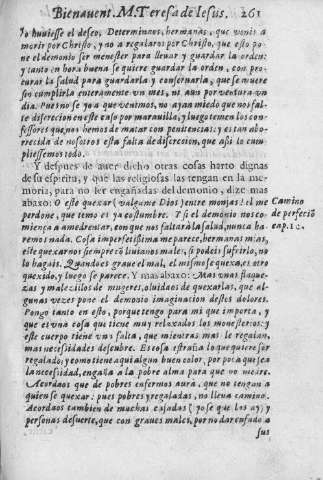 Bienauent. M. Teresa de Iesus. 261
lo huuiesse el deseo. Determinaos, hermanas, que venis a
morir por Christo, y no a regalaros por Christo, que esto po-
ne el demonio ser menester para lleuar y guardar la orden:
y tanto en hora buena se quiere guardar la orden, con pro-
curar la salud para guardarla y conseruarla, que se muere
sin cumplirla enteramente vn mes, ni aun por ventura vn
dia. Pues no se yo a que venimos, no ayan miedo que nos fal-
te discrecion en este caso por marauilla, y luego temen los con-
fessores que nos hemos de matar con penitencias: y es tan abo-
rrecida de nosotros esta falta de discrecion, que assi lo cum-
pliessemos todo.
Y despues de auer dicho otras cosas harto dignas
de su espiritu, y que las religiosas las tengan en la me-
moria, para no ser engañadas del demonio, dize mas
abaxo: O este quexar (valgame Dios) entre monjas! el me
perdone, que temo es ya costumbre. Y si el demonio nos co-
miença a amedrentar, con que nos faltarà la salud, nunca ha-
remos nada. Cosa imperfetissima me parece, hermanas mias,
este quexarnos siempre cō liuianos males, si podeis sufrirlo, no
lo hagais. Quando es graue el mal, el mismo se quexa, es otro
quexido, y luego se parece. Y mas abaxo: Mas vnas flaque-
zas y malezillos de mugeres, oluidaos de quexarlas, que al-
gunas vezes pone el demonio imaginacion destos dolores.
Pongo tanto en esto, porque tengo para mi que importa, y
que es vna cosa que tiene muy relaxados los monesterios: y
este cuerpo tiene vna falta, que mientras mas le regalan,
mas necessidades descubre. Es cosa estraña lo que quiere ser
regalado; y como tiene aqui algun buen color, por poca que sea
la necessidad, engaña a la pobre alma para que no medre.
Acordaos que de pobres enfermos aurà, que no tengan a
quien se quexar: pues pobres y regaladas, no lleua camino.
Acordaos tambien de muchas casadas (yo se que las ay) y
personas de suerte, que con graues males, por no dar enfado a
sus
Camino
de perfeciō
cap. 12.